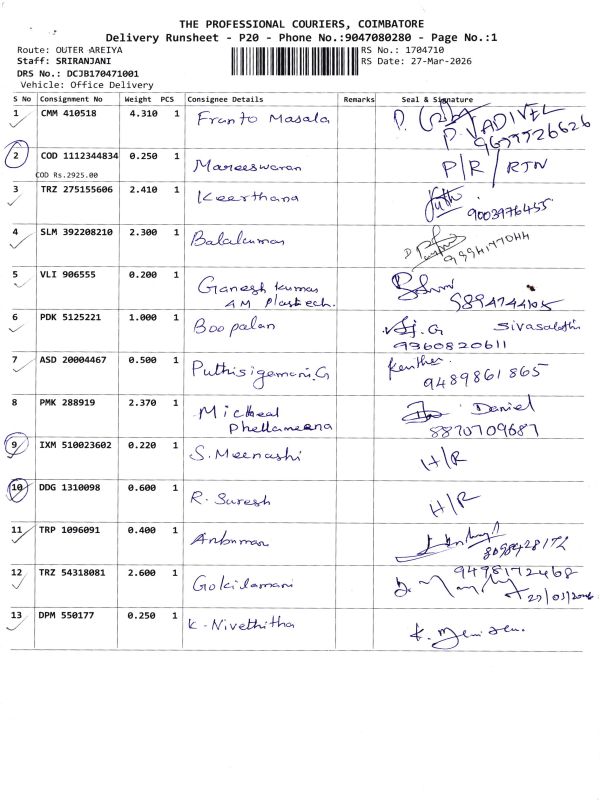 THE PROFESSIONAL COURIERS, COIMBATORE
Delivery Runsheet - P20 - Phone No.:9047080280 - Page No.:1
Route: OUTER AREIYA RS No.: 1704710
Staff: SRIRANJANI RS Date: 27-Mar-2026
DRS No.: DCJB170471001
Vehicle: Office Delivery
S No Consignment No Weight PCS Consignee Details Remarks Seal & Signature
1 CMM 410518 4.310 1 Franto Masala P. VADIVEL
2 COD 1112344834 0.250 1 Mareeswaran P/R/RTN
COD Rs.2925.00
3 TRZ 275155606 2.410 1 Keerthana 9003976455
4 SLM 392208210 2.300 1 Balakumar
5 VLI 906555 0.200 1 Ganesh Kumar
AM Plastech. 9894744105
6 PDK 5125221 1.000 1 Boopalan
9360820611
7 ASD 20004467 0.500 1 Puthisigamani.G
9489861865
8 PMK 288919 2.370 1 Micheal Daniel
Phellameena 8870709687
9 IXM 510023602 0.220 1 S. Meenashi H/R
10 DDG 1310098 0.600 1 R. Suresh H/R
11 TRP 1096091 0.400 1 Anbumani
12 TRZ 54318081 2.600 1 Gokilamani 9498172468
13 DPM 550177 0.250 1 K. Nivethitha